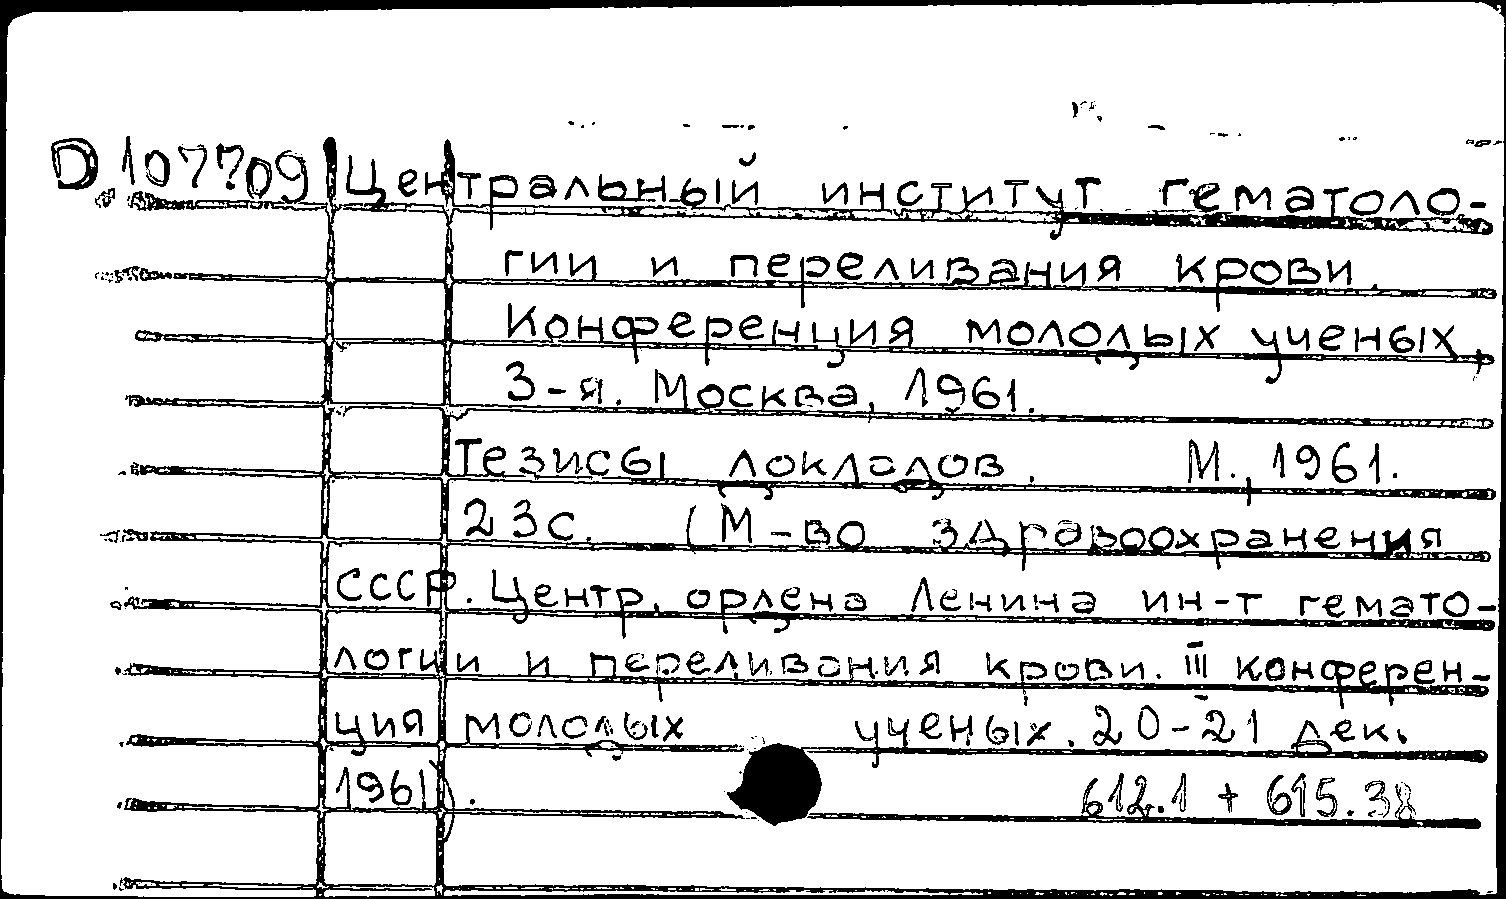 D 107709 Центральный институт гематоло-
гии и переливания крови.
Конференция молодых ученых,
3-я. Москва, 1961.
Тезисы докладов. М., 1961.
23с. (М-во здравоохранения
СССР. Центр. ордена Ленина ин-т гемато-
логии и переливания крови. III конферен-
ция молодых ученых. 20-21 дек.
1961).
612.1 + 615.38